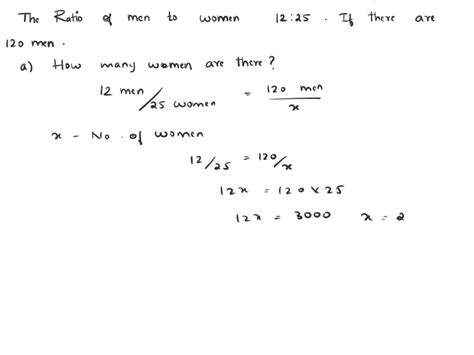 The Ratio of men to women 12:25. If there are
120 men.
a) How many women are there?
12 men/25 women = 120 men/x
x - No. of women
12/25 = 120/x
12x = 120 x 25
12x = 3000 x = 2